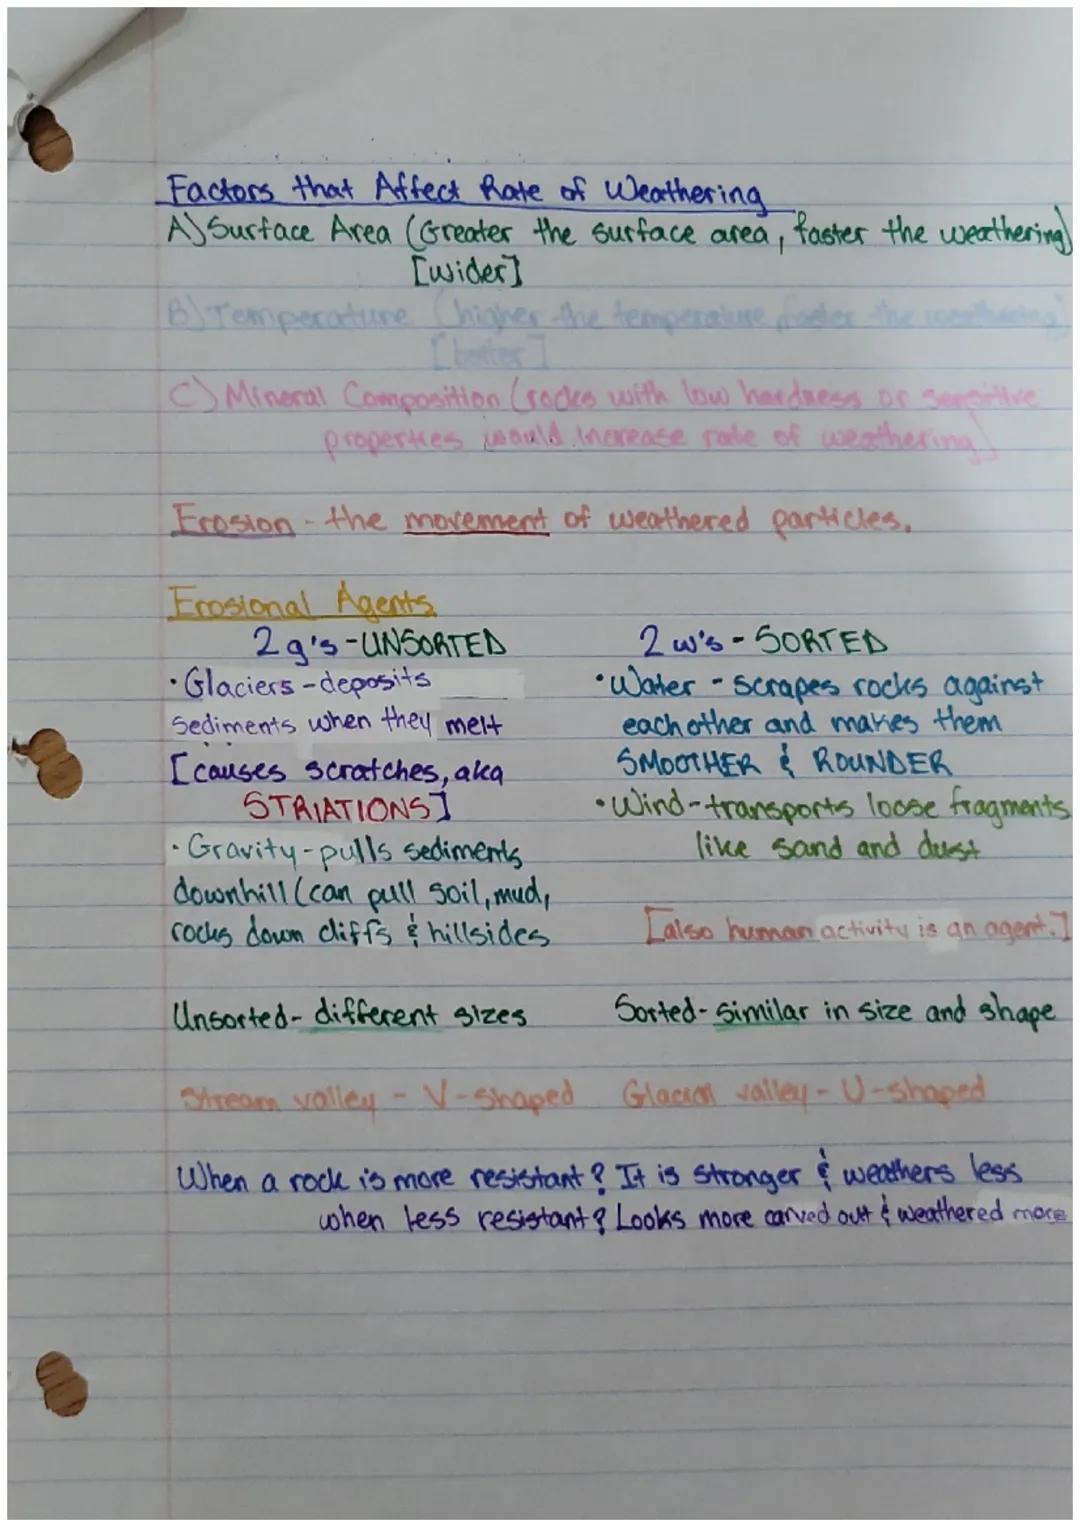 Factors that Affect Rate of Weathering
A) Surface Area (Greater the surface area, faster the weathering)
[wider]
B) Temperature (higher the temperature faster the weathering)
[hotter]
C) Mineral Composition (rocks with low hardness or sensitive
properties would increase rate of weathering)
Erosion - the movement of weathered particles.
Erosional Agents
2 g's - UNSORTED
• Glaciers - deposits
sediments when they melt
[causes scratches, aka
STRIATIONS]
• Gravity - pulls sediments
downhill (can pull soil, mud,
rocks down cliffs & hillsides
2 w's - SORTED
• Water - scrapes rocks against
each other and makes them
SMOOTHER & ROUNDER
• Wind - transports loose fragments
like sand and dust
[also human activity is an agent.]
Unsorted - different sizes
Sorted - similar in size and shape
Stream valley - V-shaped
Glacial valley - U-shaped
When a rock is more resistant? It is stronger & weathers less
when less resistant? Looks more carved out & weathered more